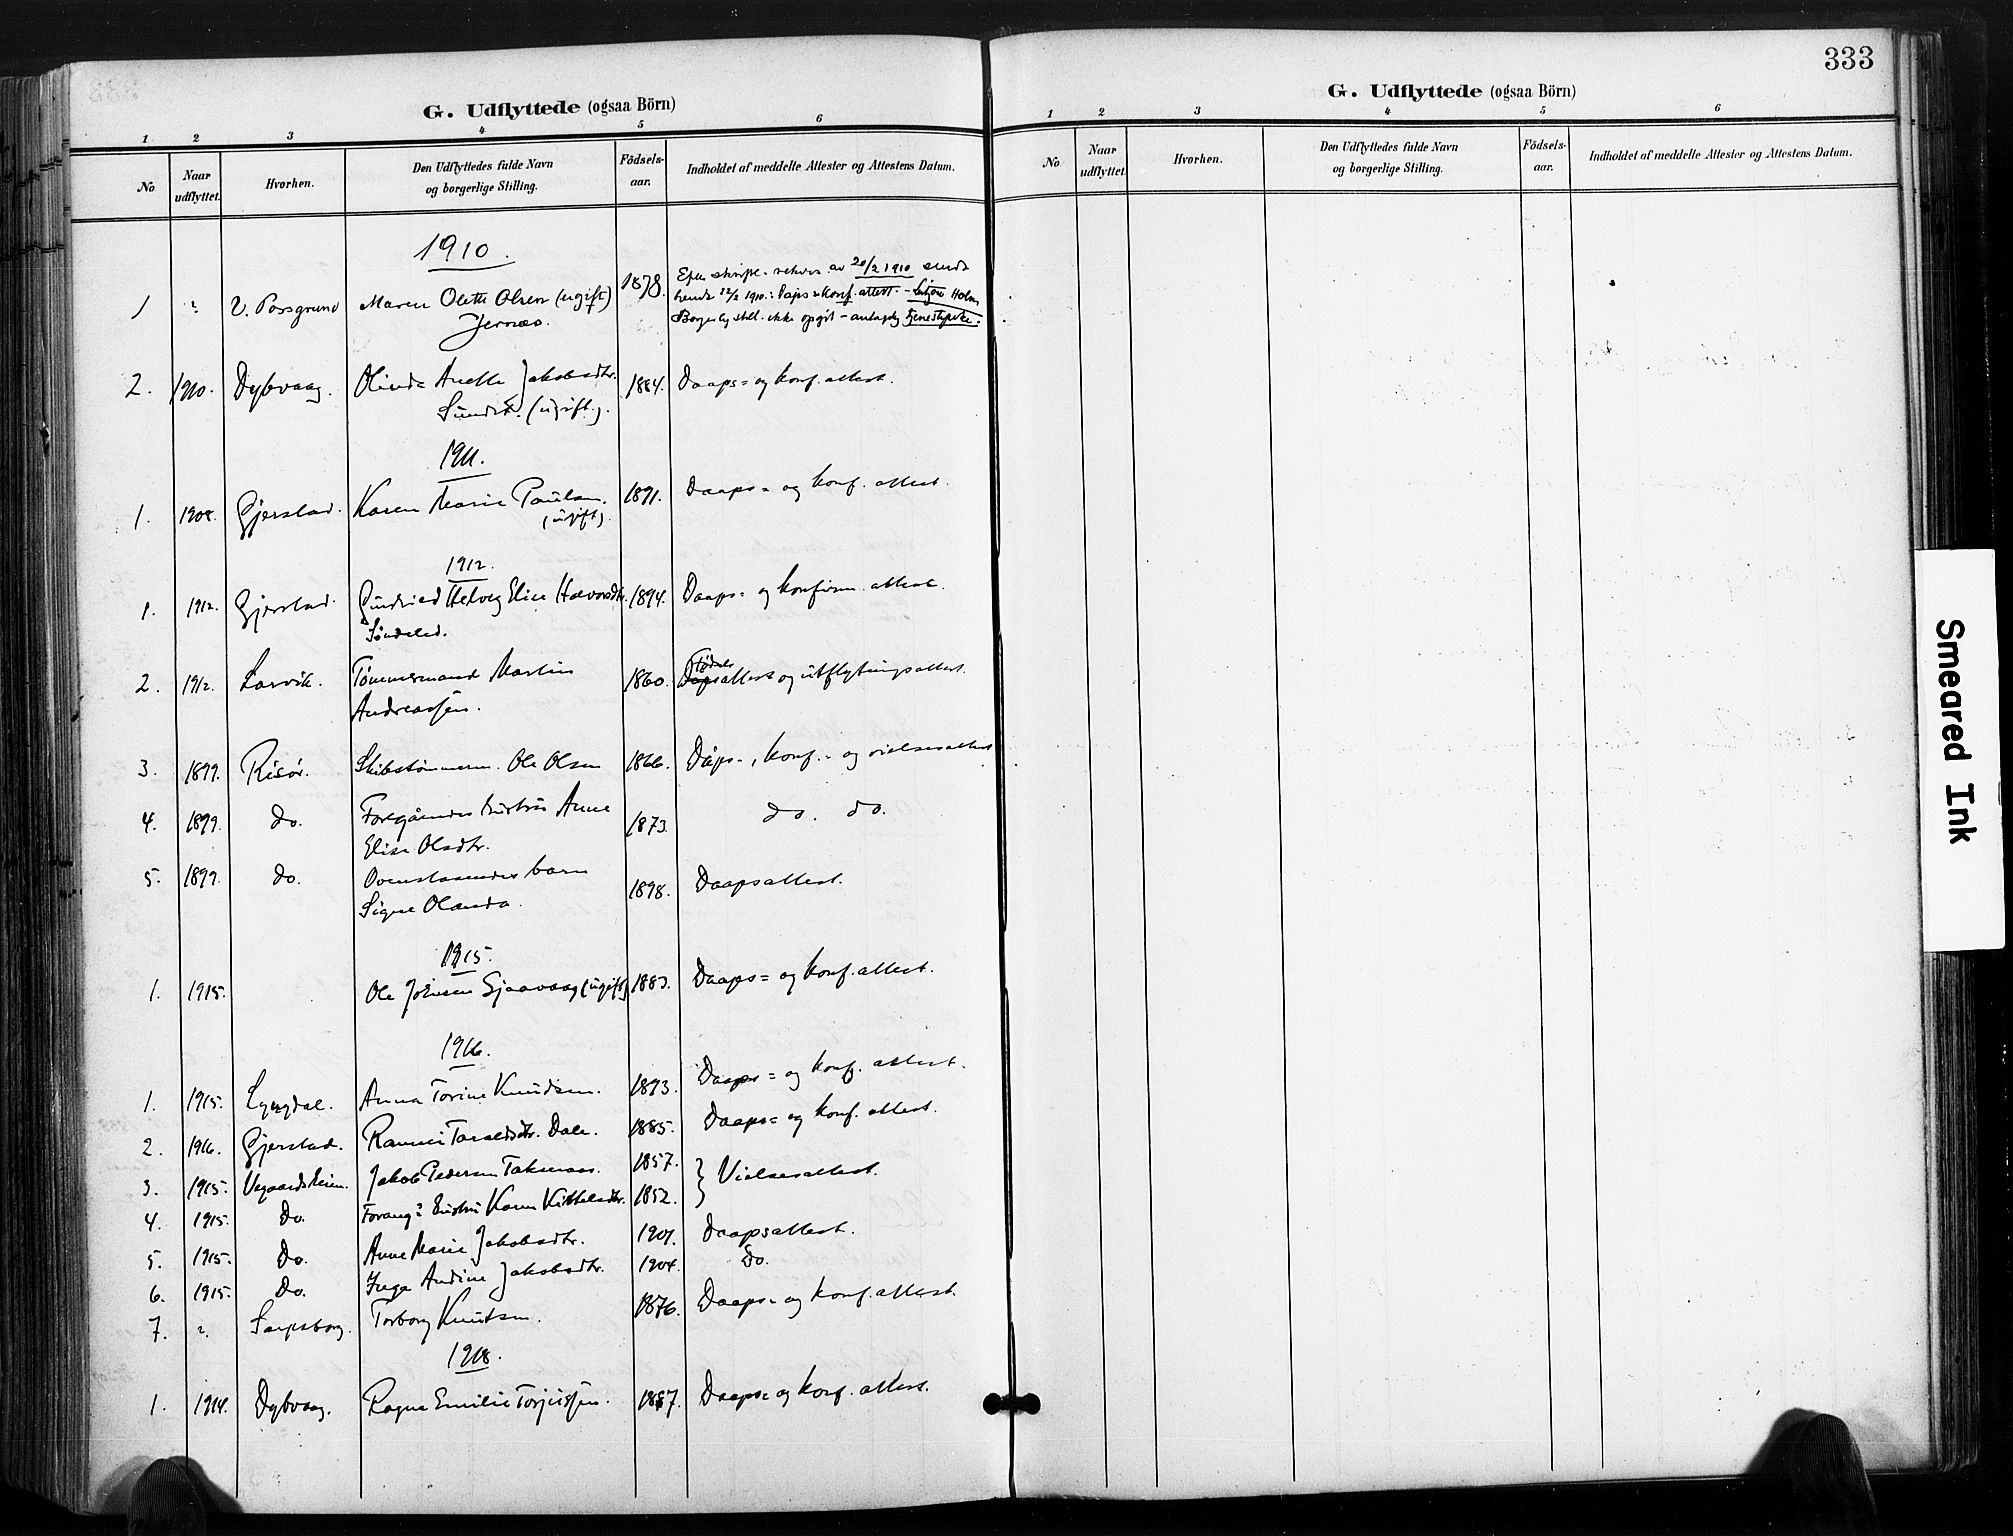 G. Udflyttede (ogsaa Börn)
1 2 3 4 5 6
No Naar udflyttet. Hvorhen. Den Udflyttedes fulde Navn og borgerlige Stilling. Födselsaar. Indholdet af meddelte Attester og Attestens Datum.
1910.
1 " V. Porsgrund Maren Olette Olsen (ugift) 1878. Efter skriftl. rekvis. av 20/2 1910 sendt
Jernæs. hende 22/2 1910: Daps= & konf. attest. -
Borgerlig still. ikke opgit - antagelig tjenestepike.
2. 1910. Dybvaag. Olinda Anette Jakobsdtr. 1884. Daaps= og konf. attest.
Sundet. (ugift).
1911.
1. 1908. Gjerstad. Karen Marie Paulsen. 1891. Daaps= og konf. attest.
(ugift).
1912.
1. 1912. Gjerstad. Helveg Elise Halvorsdtr. 1894. Daaps= og konfirm. attest.
Søndeled.
2. 1912. Larvik. Tømmermand Martin 1860. Fødselsattest og utflytningsattest.
Andreassen.
3. 1899. Risör. Skibstømmerm. Ole Olsen 1866. Dåps-, konf.- og vielsesattest
4. 1899. do. Foregåendes hustru Anne 1873. do. do.
Elise Olsdtr.
5. 1899. do. Ovenstaaendes barn 1898. Daapsattest.
Signe Olanda.
1915.
1. 1915. Ole Johnsen Sjaavaag (ugift) 1883. Daaps= og konf. attest.
1916.
1. 1915. Lyngdal. Anna Torine Knudsen. 1893. Daaps= og konf. attest.
2. 1916. Gjerstad. Taraldsdtr. Dale. 1885. Daaps= og konf. attest.
3. 1915. Vegaardsheien. Jakob Pedersen 1857. } Vielsesattest.
4. 1915. Do. Forang: hustru Karen Kittelsdtr. 1852.
5. 1915. Do. Anne Marie Jakobsdtr. 1901. Daapsattest.
6. 1915. Do. Inga Andine Jakobsdtr. 1904. Do.
7. ". Sarpsborg. Torborg Knutsen. 1876. Daaps= og konf. attest.
1918.
1. 1914. Dybvaag. Ragna Emilie Torjussen. 1887. Daaps= og konf. attest.
333
G. Udflyttede (ogsaa Börn)
1 2 3 4 5 6
No Naar udflyttet. Hvorhen. Den Udflyttedes fulde Navn og borgerlige Stilling. Födselsaar. Indholdet af meddelte Attester og Attestens Datum.
Smeared Ink